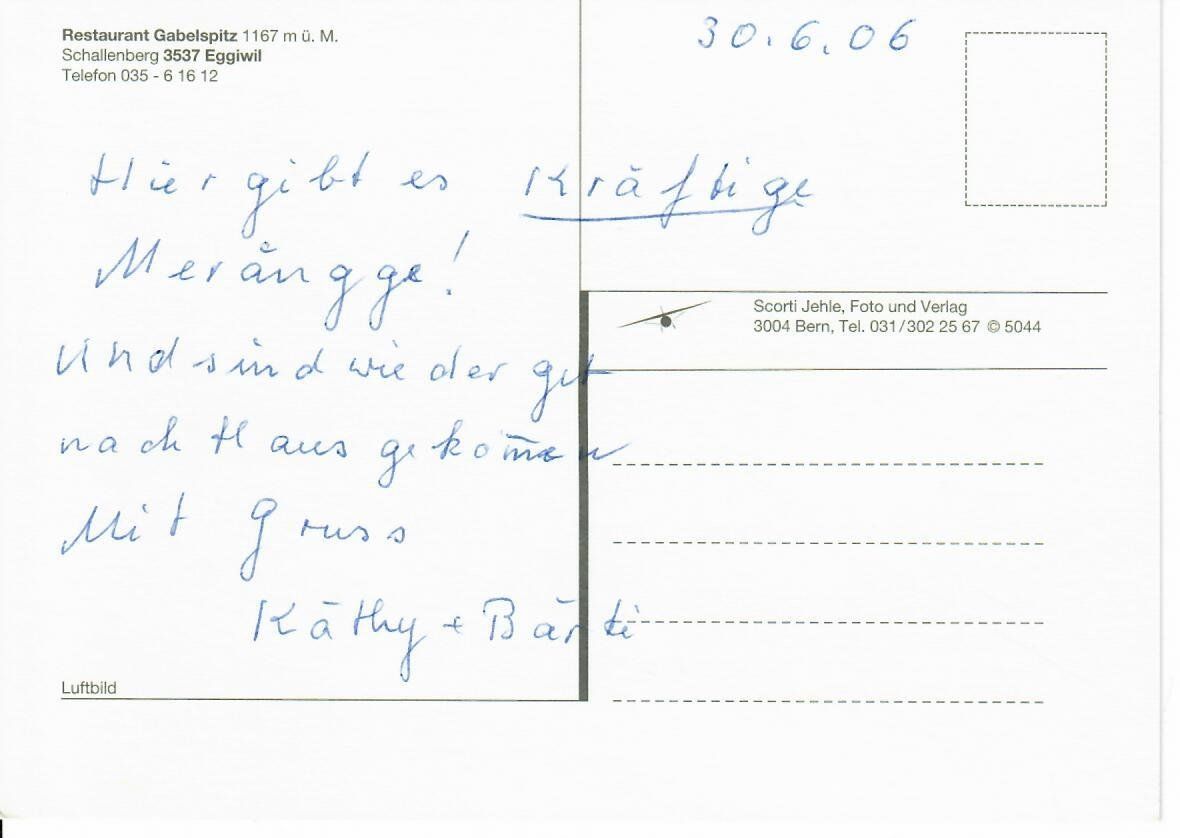 Restaurant Gabelspitz 1167 m ü. M.
Schallenberg 3537 Eggiwil
Telefon 035 - 6 16 12
30.6.06
Hier gibt es Kräftige
Merängge!
Und sind wieder gut
nach Haus gekom̅en
Mit Gruss
Käthy + Bärti
Scorti Jehle, Foto und Verlag
3004 Bern, Tel. 031/302 25 67 © 5044
Luftbild